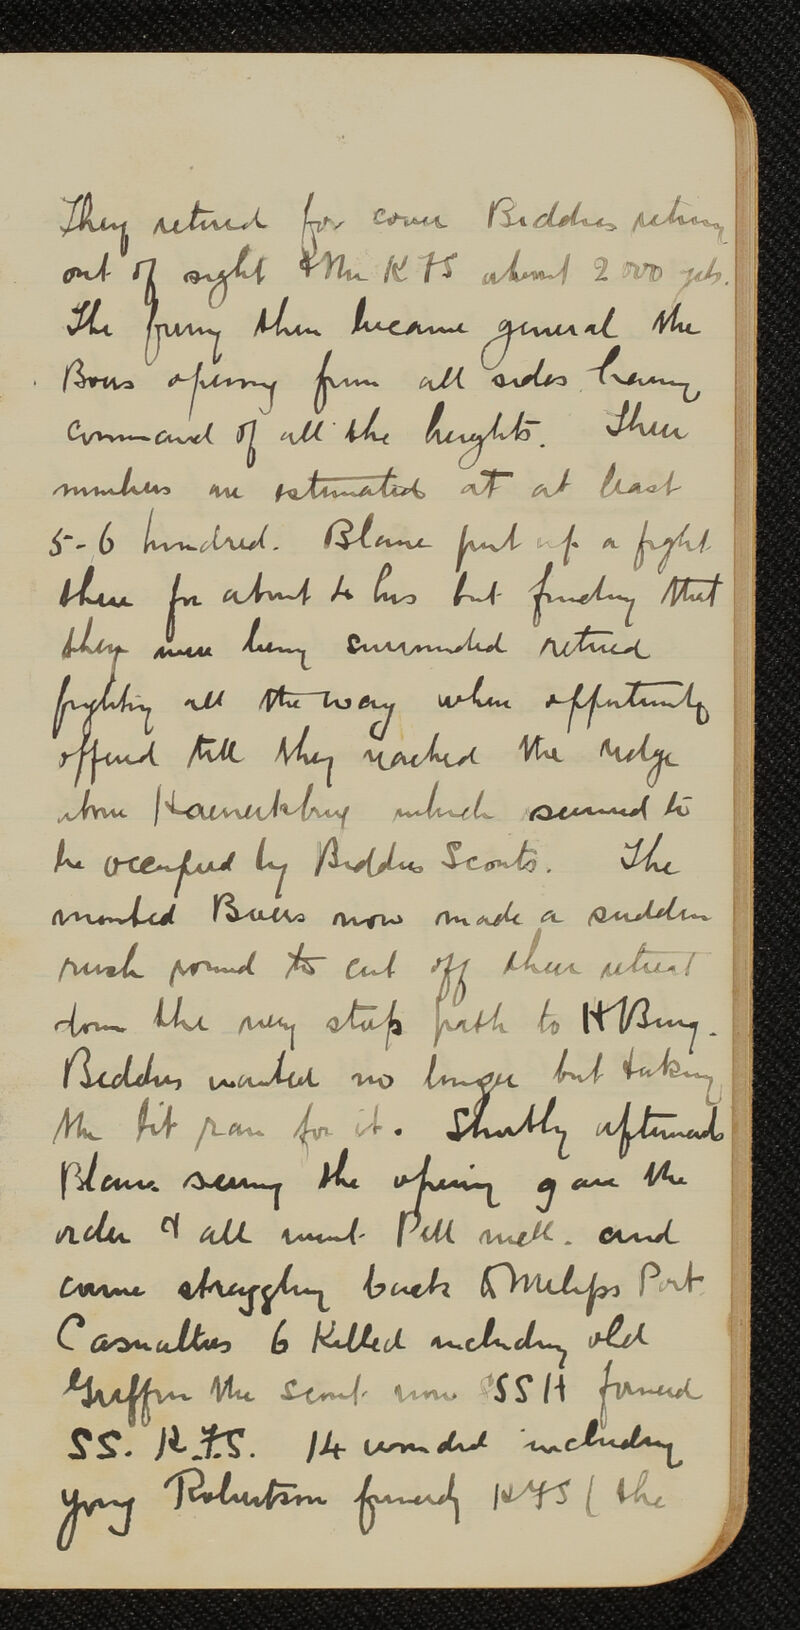 They retired for cover Beddies retiring
out of sight & the KFS about 2000 yds.
The firing then became general the
Boers opening from all sides having
command of all the heights. Their
numbers are estimated at at least
5-6 hundred. Blaine put up a fight
there for about to hrs but finding that
they were being surrounded retired
fighting all the way when opportunity
offered till they reached the ridge
above Haenertsburg which seemed to
be occupied by Beddies Scouts. The
mounted Boers now made a sudden
rush round to cut off their retreat
down the very steep path to HBurg.
Beddies waited no longer but taking
the bit ran for it. Shortly afterwards
Blaine seeing the opening gave the
order & all went Pell mell. and
came straggling back to Phelips Post
Casualties 6 Killed including old
Griffin the scout now SSH formerd
SS. K.F.S. 14 wounded including
young Robertson formerly KFS ( the